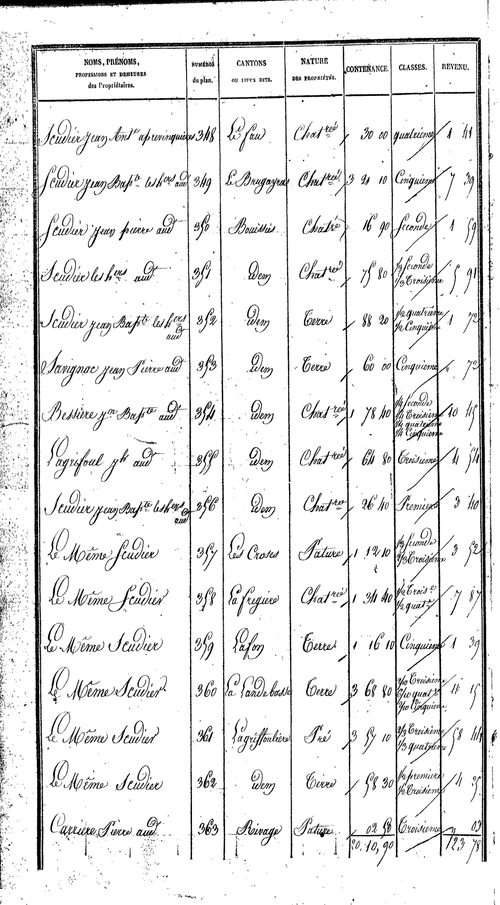 NOMS, PRÉNOMS, PROFESSIONS ET DEMEURES des Propriétaires. NUMÉROS du plan. CANTONS OU LIEUX DITS. NATURE DES PROPRIÉTÉS. CONTENANCE. CLASSES. REVENU.
Scudier Jean Ant.e 348 Le fau Chat.rée 30 00 quatrième 1 41
Scudier Jean Bap.te les h.ers aud.t 349 Le Brugayras Chat.rée 3 21 10 Cinquième 7 39
Scudier Jean pierre aud.t 350 Bouissis Chat.rée 16 90 Seconde 1 59
Scudier les h.ers aud.t 351 idem Chat.rée 75 80 Seconde Troisième 5 91
Scudier Jean Bap.te les h.ers aud.t 352 idem Terre 88 20 1/2 quatrième 1/2 Cinquième 1 72
Savignac Jean Pierre aud.t 353 idem Terre 60 00 Cinquième 72
Bessière J.n Bap.te aud.t 354 idem Chat.rée 1 78 40 1/4 Seconde 1/4 Troisième 1/4 quatrième 1/4 Cinquième 10 45
Lagrifoul aud.t 355 idem Chat.rée 64 80 Troisième 4 54
Scudier Jean Bap.te les h.ers aud.t 356 idem Chat.rée 26 40 Premiere 3 40
Le Même Scudier 357 Les Croses Pature 1 12 10 1/3 Seconde 2/3 Troisième 3 52
Le Même Scudier 358 La fregiere Chat.rée 1 34 40 1/2 Trois.e 1/2 quat.e 7 87
Le Même Scudier 359 Lafon Terre 1 16 10 Cinquième 1 39
Le Même Scudier 360 La Landebasse Terre 3 68 80 Troisième quat.e Cinquième 11 15
Le Même Scudier 361 Lagriffoulière Pré 3 57 10 2/3 Troisième 1/3 quatrième 58 44
Le Même Scudier 362 idem Terre 58 30 1/2 premiere 1/2 Troisième 4 35
Carrière Pierre aud.t 363 Rivage Pature 02 58 Troisième 03
20.10,90 123 78